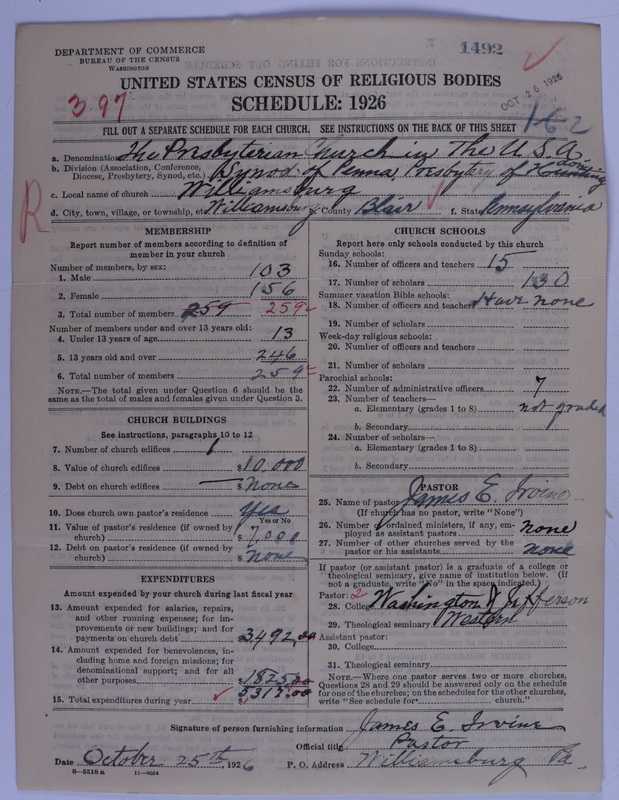 DEPARTMENT OF COMMERCE
BUREAU OF THE CENSUS
WASHINGTON
1492
UNITED STATES CENSUS OF RELIGIOUS BODIES
SCHEDULE: 1926
397
OCT 26 1926
162
FILL OUT A SEPARATE SCHEDULE FOR EACH CHURCH. SEE INSTRUCTIONS ON THE BACK OF THIS SHEET
a. Denomination The Presbyterian Church in The U.S.A.
b. Division (Association, Conference, Diocese, Presbytery, Synod, etc.) Synod of Penna, Presbytery of Huntingdon
c. Local name of church Williamsburg
d. City, town, village, or township, etc. Williamsburg County Blair f. State Pennsylvania
R
MEMBERSHIP
Report number of members according to definition of member in your church
Number of members, by sex:
1. Male 103
2. Female 156
3. Total number of members 259 259
Number of members under and over 13 years old:
4. Under 13 years of age 13
5. 13 years old and over 246
6. Total number of members 259
NOTE.—The total given under Question 6 should be the same as the total of males and females given under Question 3.
CHURCH BUILDINGS
See instructions, paragraphs 10 to 12
7. Number of church edifices 1
8. Value of church edifices $10,000
9. Debt on church edifices $None
10. Does church own pastor's residence Yes
Yes or No
11. Value of pastor's residence (if owned by church) $7,000
12. Debt on pastor's residence (if owned by church) $None
EXPENDITURES
Amount expended by your church during last fiscal year
13. Amount expended for salaries, repairs, and other running expenses; for improvements or new buildings; and for payments on church debt 3492.00
14. Amount expended for benevolences, including home and foreign missions; for denominational support; and for all other purposes $1825.00
15. Total expenditures during year $5317.00
CHURCH SCHOOLS
Report here only schools conducted by this church
Sunday schools:
16. Number of officers and teachers 15
17. Number of scholars 130
Summer vacation Bible schools:
18. Number of officers and teachers Have none
19. Number of scholars
Week-day religious schools:
20. Number of officers and teachers
21. Number of scholars
Parochial schools:
22. Number of administrative officers 7
23. Number of teachers—
a. Elementary (grades 1 to 8) not graded
b. Secondary
24. Number of scholars—
a. Elementary (grades 1 to 8)
b. Secondary
PASTOR
25. Name of pastor James E. Irvine
(If church has no pastor, write "None")
26. Number of ordained ministers, if any, employed as assistant pastors none
27. Number of other churches served by the pastor or his assistants none
If pastor (or assistant pastor) is a graduate of a college or theological seminary, give name of institution below. (If not a graduate, write "No" in the space indicated.)
Pastor: 2
28. College Washington & Jefferson
29. Theological seminary Western
Assistant pastor:
30. College
31. Theological seminary
NOTE.—Where one pastor serves two or more churches, Questions 28 and 29 should be answered only on the schedule for one of the churches; on the schedules for the other churches, write "See schedule for church."
Signature of person furnishing information James E. Irvine
Official title Pastor
Date October 25th, 1926 P. O. Address Williamsburg Pa.
8—5518a 11—9054